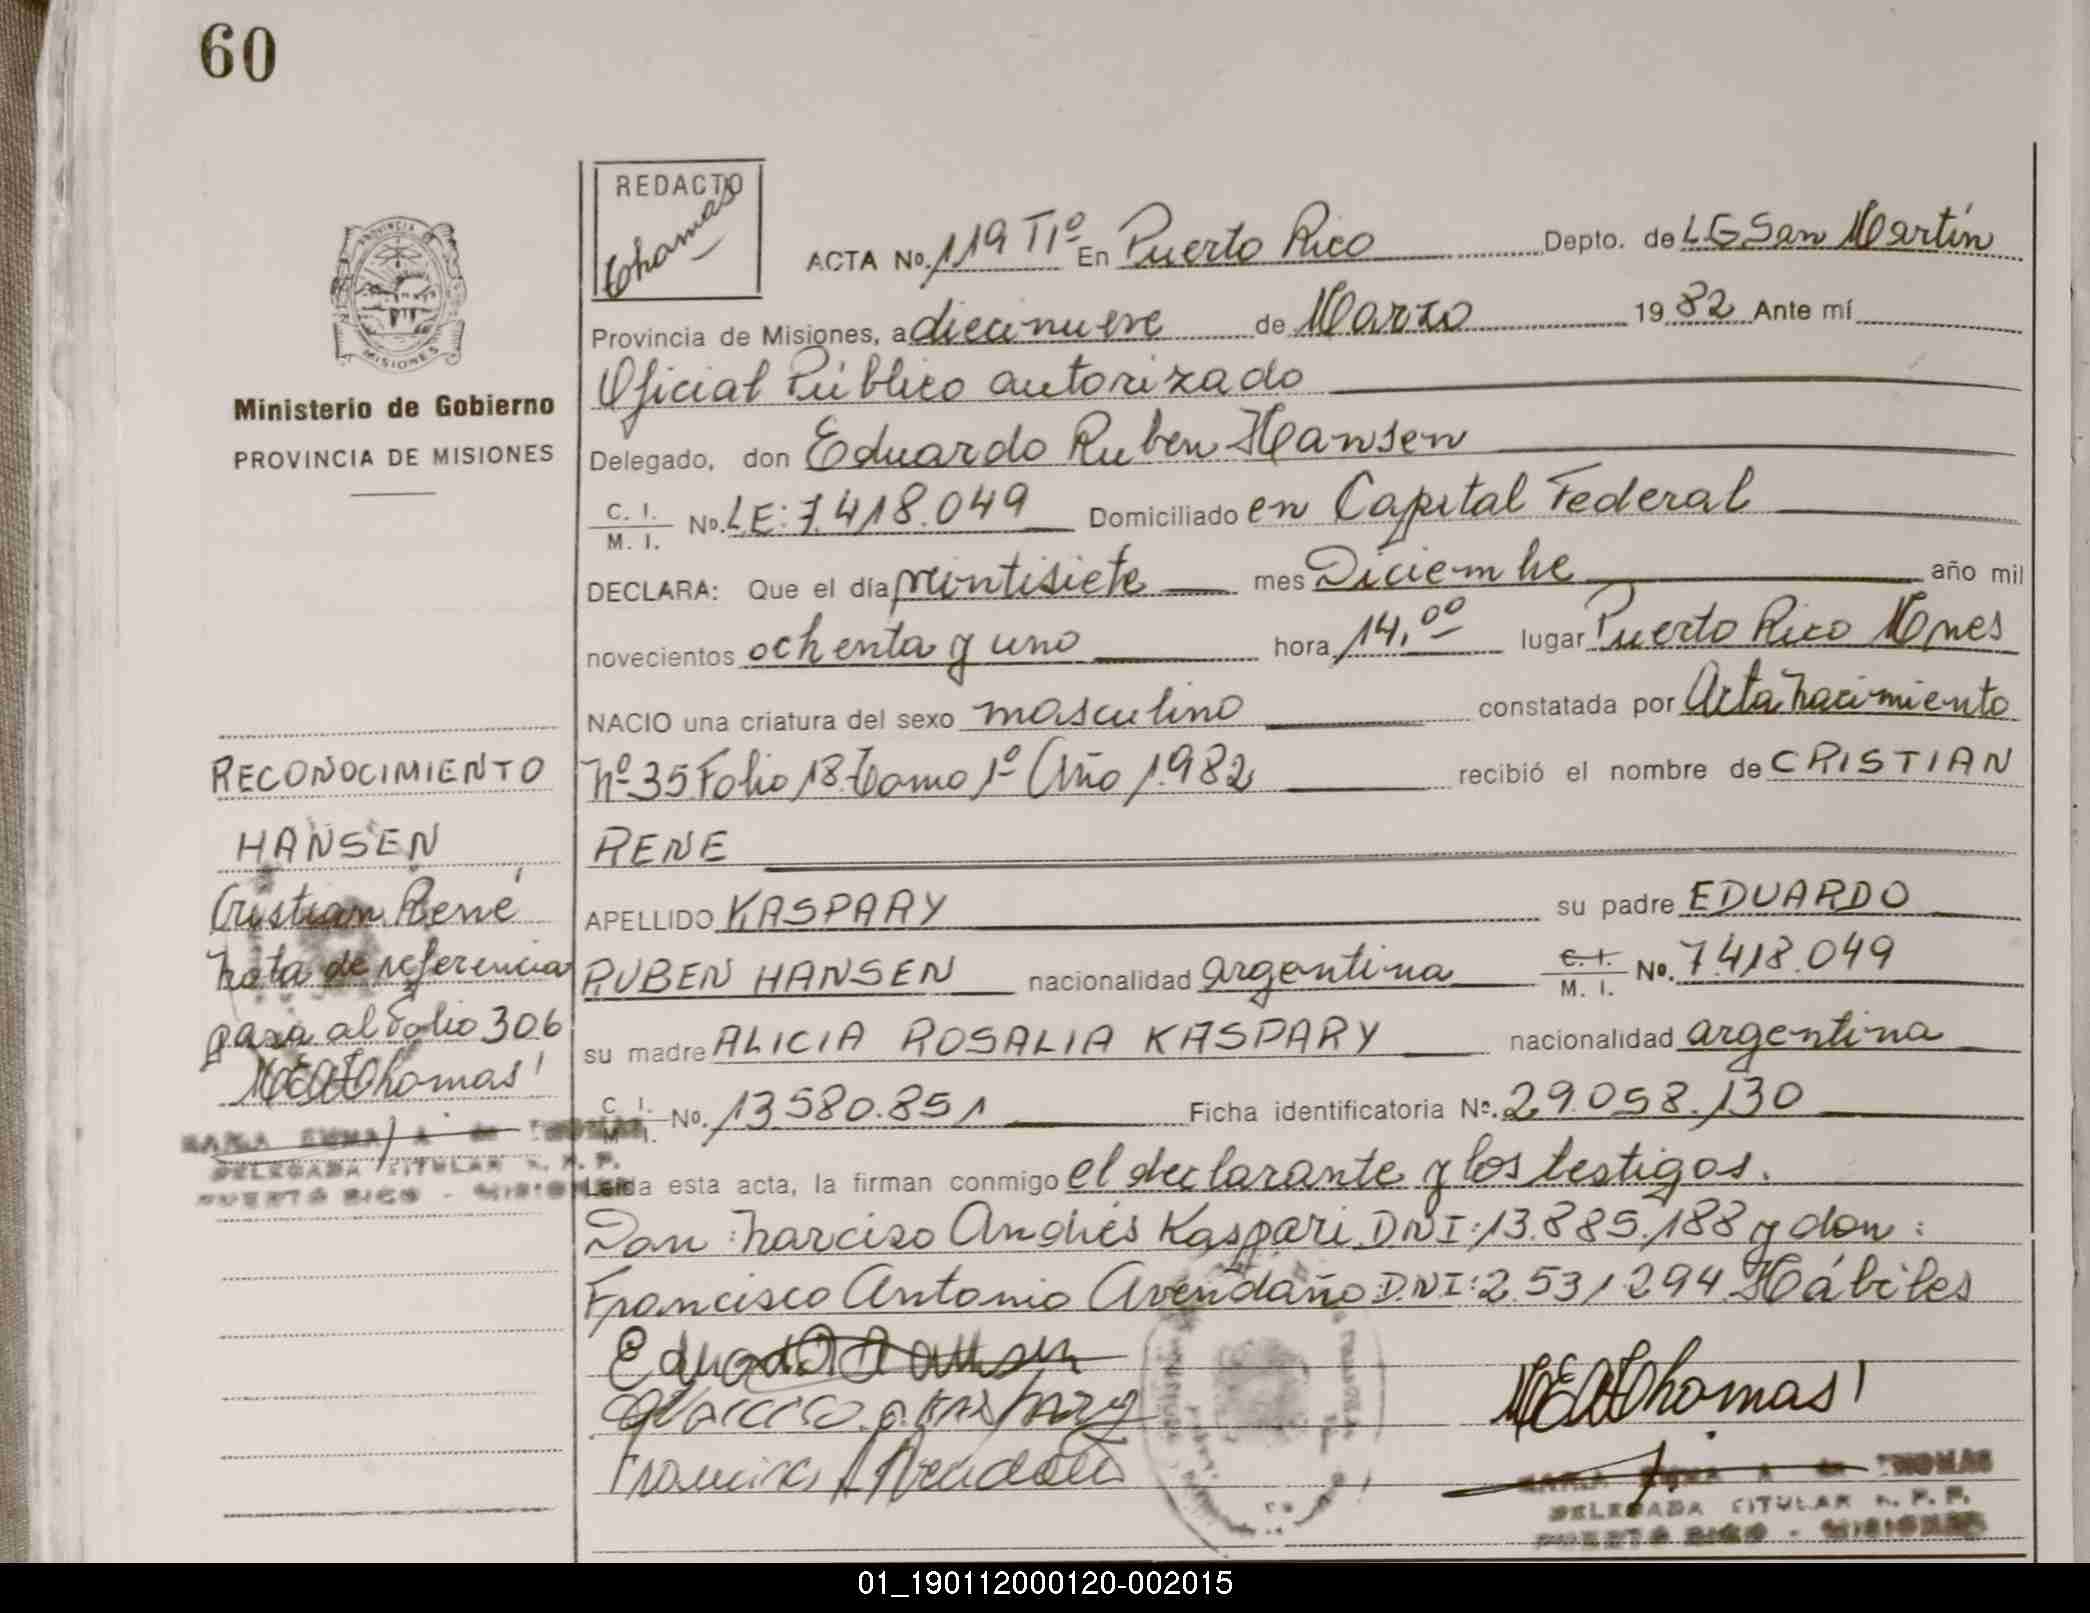 60
REDACTO
Thomas
PROVINCIA DE
MISIONES
Ministerio de Gobierno
PROVINCIA DE MISIONES
ACTA No. 119 Tº En Puerto Rico Depto. de LG San Martín
Provincia de Misiones, a diecinueve de Marzo 1982 Ante mí
Oficial Público autorizado
Delegado, don Eduardo Ruben Hansen
C. I. / M. I. No. LE: 7.418.049 Domiciliado en Capital Federal
DECLARA: Que el día veintisiete mes Diciembre año mil
novecientos ochenta y uno hora 14,00 lugar Puerto Rico Mnes
NACIO una criatura del sexo masculino constatada por Acta nacimiento
Nº 35 Folio 18 Tomo 1º Año 1982 recibió el nombre de CRISTIAN
RENE
APELLIDO KASPARY su padre EDUARDO
RUBEN HANSEN nacionalidad argentina C. I. / M. I. No. 7.418.049
su madre ALICIA ROSALIA KASPARY nacionalidad argentina
C. I. / M. I. No. 13.580.851 Ficha identificatoria Nº. 29.058.130
Leída esta acta, la firman conmigo el declarante y los testigos.
Don: Narciso Andrés Kaspari DNI: 13.885.188 y don:
Francisco Antonio Avendaño D.N.I: 2.531294. Hábiles
RECONOCIMIENTO
HANSEN
Cristian René
Nota de referencia
pasa al Folio 306
MEA Thomas
MARIA EMMA A. de THOMAS
DELEGADA TITULAR R. P. P.
PUERTO RICO - MISIONES
Eduardo R Hansen
Narciso A. Kaspary
Francisco A Avendaño
MEA Thomas
MARIA EMMA A. de THOMAS
DELEGADA TITULAR R. P. P.
PUERTO RICO - MISIONES
01_190112000120-002015